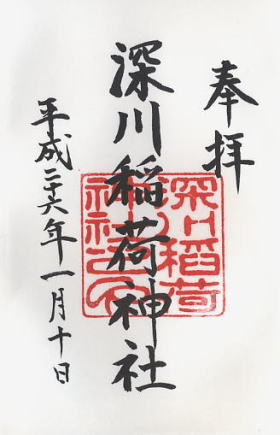 奉拝
深川稲荷神社
平成二十六年一月十日
深川稲荷
神社之印